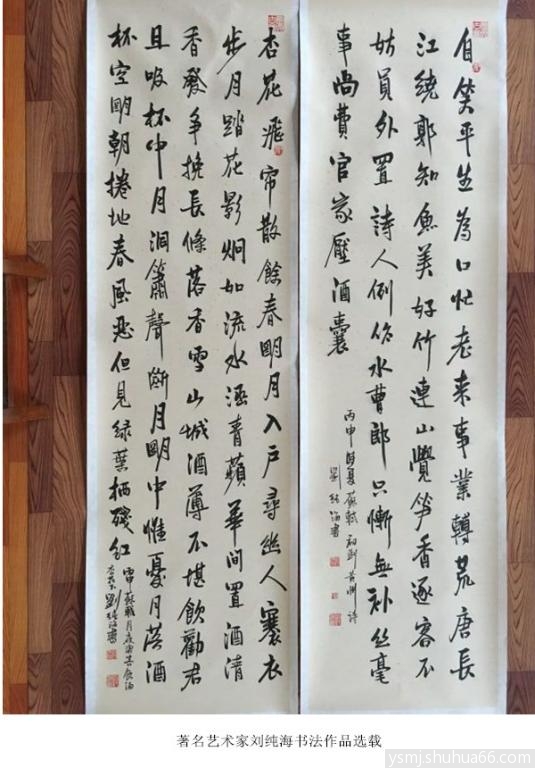 自笑平生為口忙老来事業轉荒唐長
江繞郭知魚美好竹連山覺笋香逐客不
妨員外置詩人例作水曹郎只慚無補丝毫
事尚費官家壓酒囊
丙申夏蘇軾初到黄州詩
劉純海書
杏花飛帘散餘春明月入户尋幽人褰衣
步月踏花影炯如流水涵青蘋華間置酒清
香發争挽長條落香雪山城酒薄不堪飲勸君
且吸杯中月洞簫聲斷月明中惟憂月落酒
杯空明朝捲地春風惡但見緑葉栖殘紅
丙申蘇軾月夜與客飲酒
杏花下劉純海書
著名艺术家刘纯海书法作品选载
ysmj.shuhua66.com